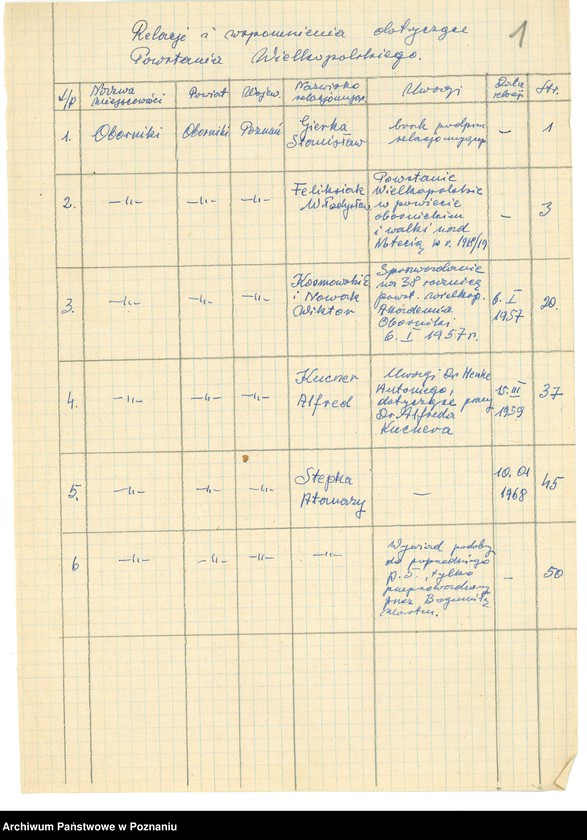 1
Relacje i wspomnienia dotyczące
Powstania Wielkopolskiego.
L/p Nazwa miejscowości Powiat Wojew. Nazwisko relacjonując. Uwagi Data relacji Str.
1. Oborniki Oborniki Poznań Gierka Stanisław brak podpisu relacjonującego — 1
2. —„— —„— —„— Feliksiak Władysław Powstanie Wielkopolskie w powiecie obornickim i walki nad Notecią w r. 1918/19 — 3
3. —„— —„— —„— Kosmowski i Nowak Wiktor Sprawozdanie na 38 rocznicę powst. wielkop. Akademia Oborniki 6. I 1957 r. 6. I 1957 20.
4. —„— —„— —„— Kucner Alfred Uwagi Dr Henke Antoniego, dotyczące pracy Dr Alfreda Kucnera 15. III 1959 37
5. —„— —„— —„— Stepka Atanazy — 10. 01 1968 45
6 —„— —„— —„— —„— Wywiad podobny do poprzedniego p. 5., tylko przeprowadzony przez — 50
Archiwum Państwowe w Poznaniu